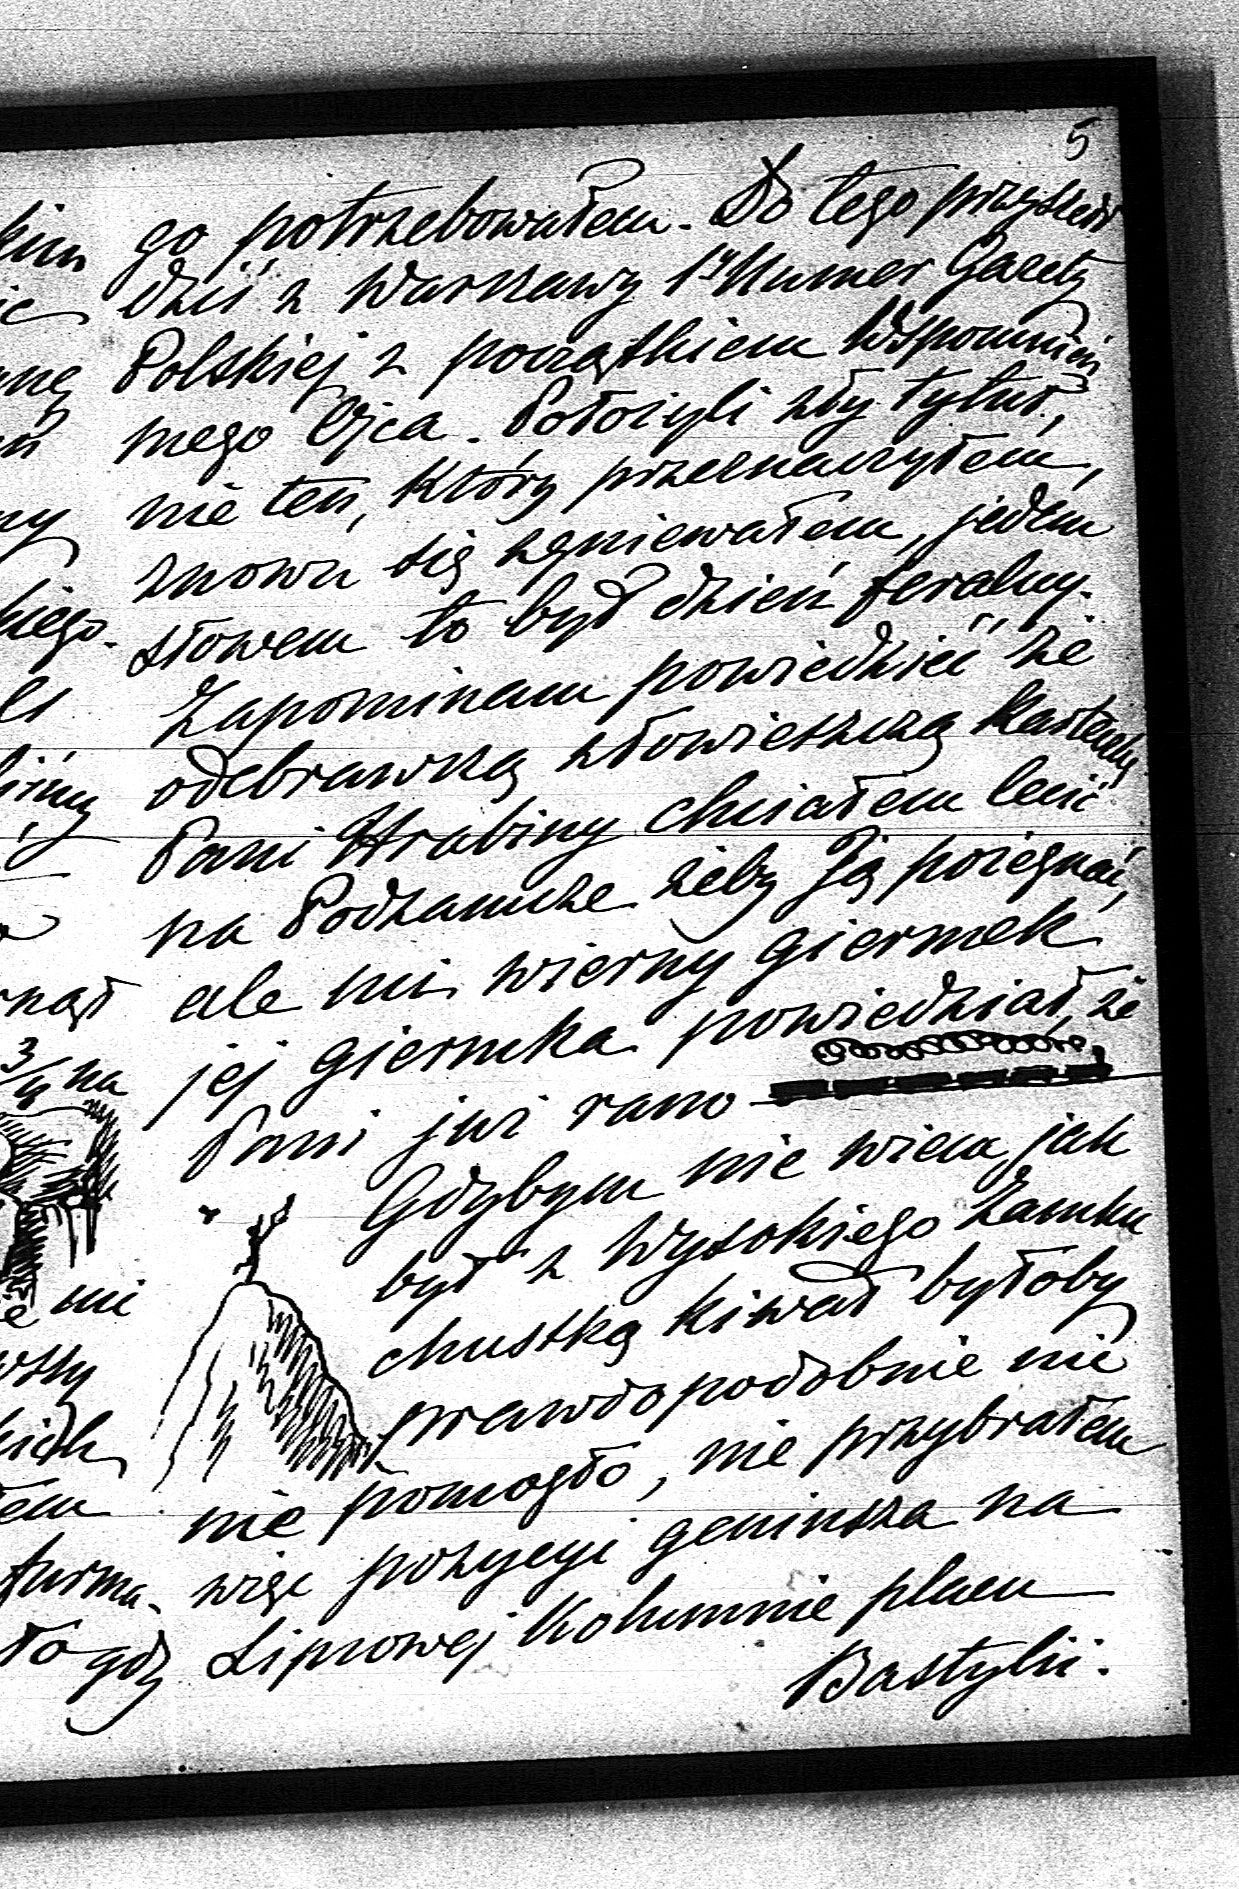 5
go potrzebowałem. Do tego przyszedł
dziś z Warszawy 1y Numer Gazety
Polskiej z początkiem Wspomnień
mego Ojca. Położyli zły tytuł,
nie ten, który przeznaczyłem,
znowu się zgniewałem, jedem
słowem to był dzień feralny.
Zapominam powiedzieć że
odebrawszą złowieszczą karteczkę
Pani Hrabiny chciałem lecić
na Podzamcze żeby Ją pożegnać,
ale mi wierny giermek
jej giermka powiedział, że
Pani już rano
Gdybym nie wiem jak
był z Wysokiego Zamku
chustką kiwał byłoby
prawdopodobnie nic
nie pomogło, nie przybrałem
więc pozycyi geniusza na
Lipcowej Kolumnie placu
Bastylii.
kiego.
3/4 na
mi
kich
turma.
gdy